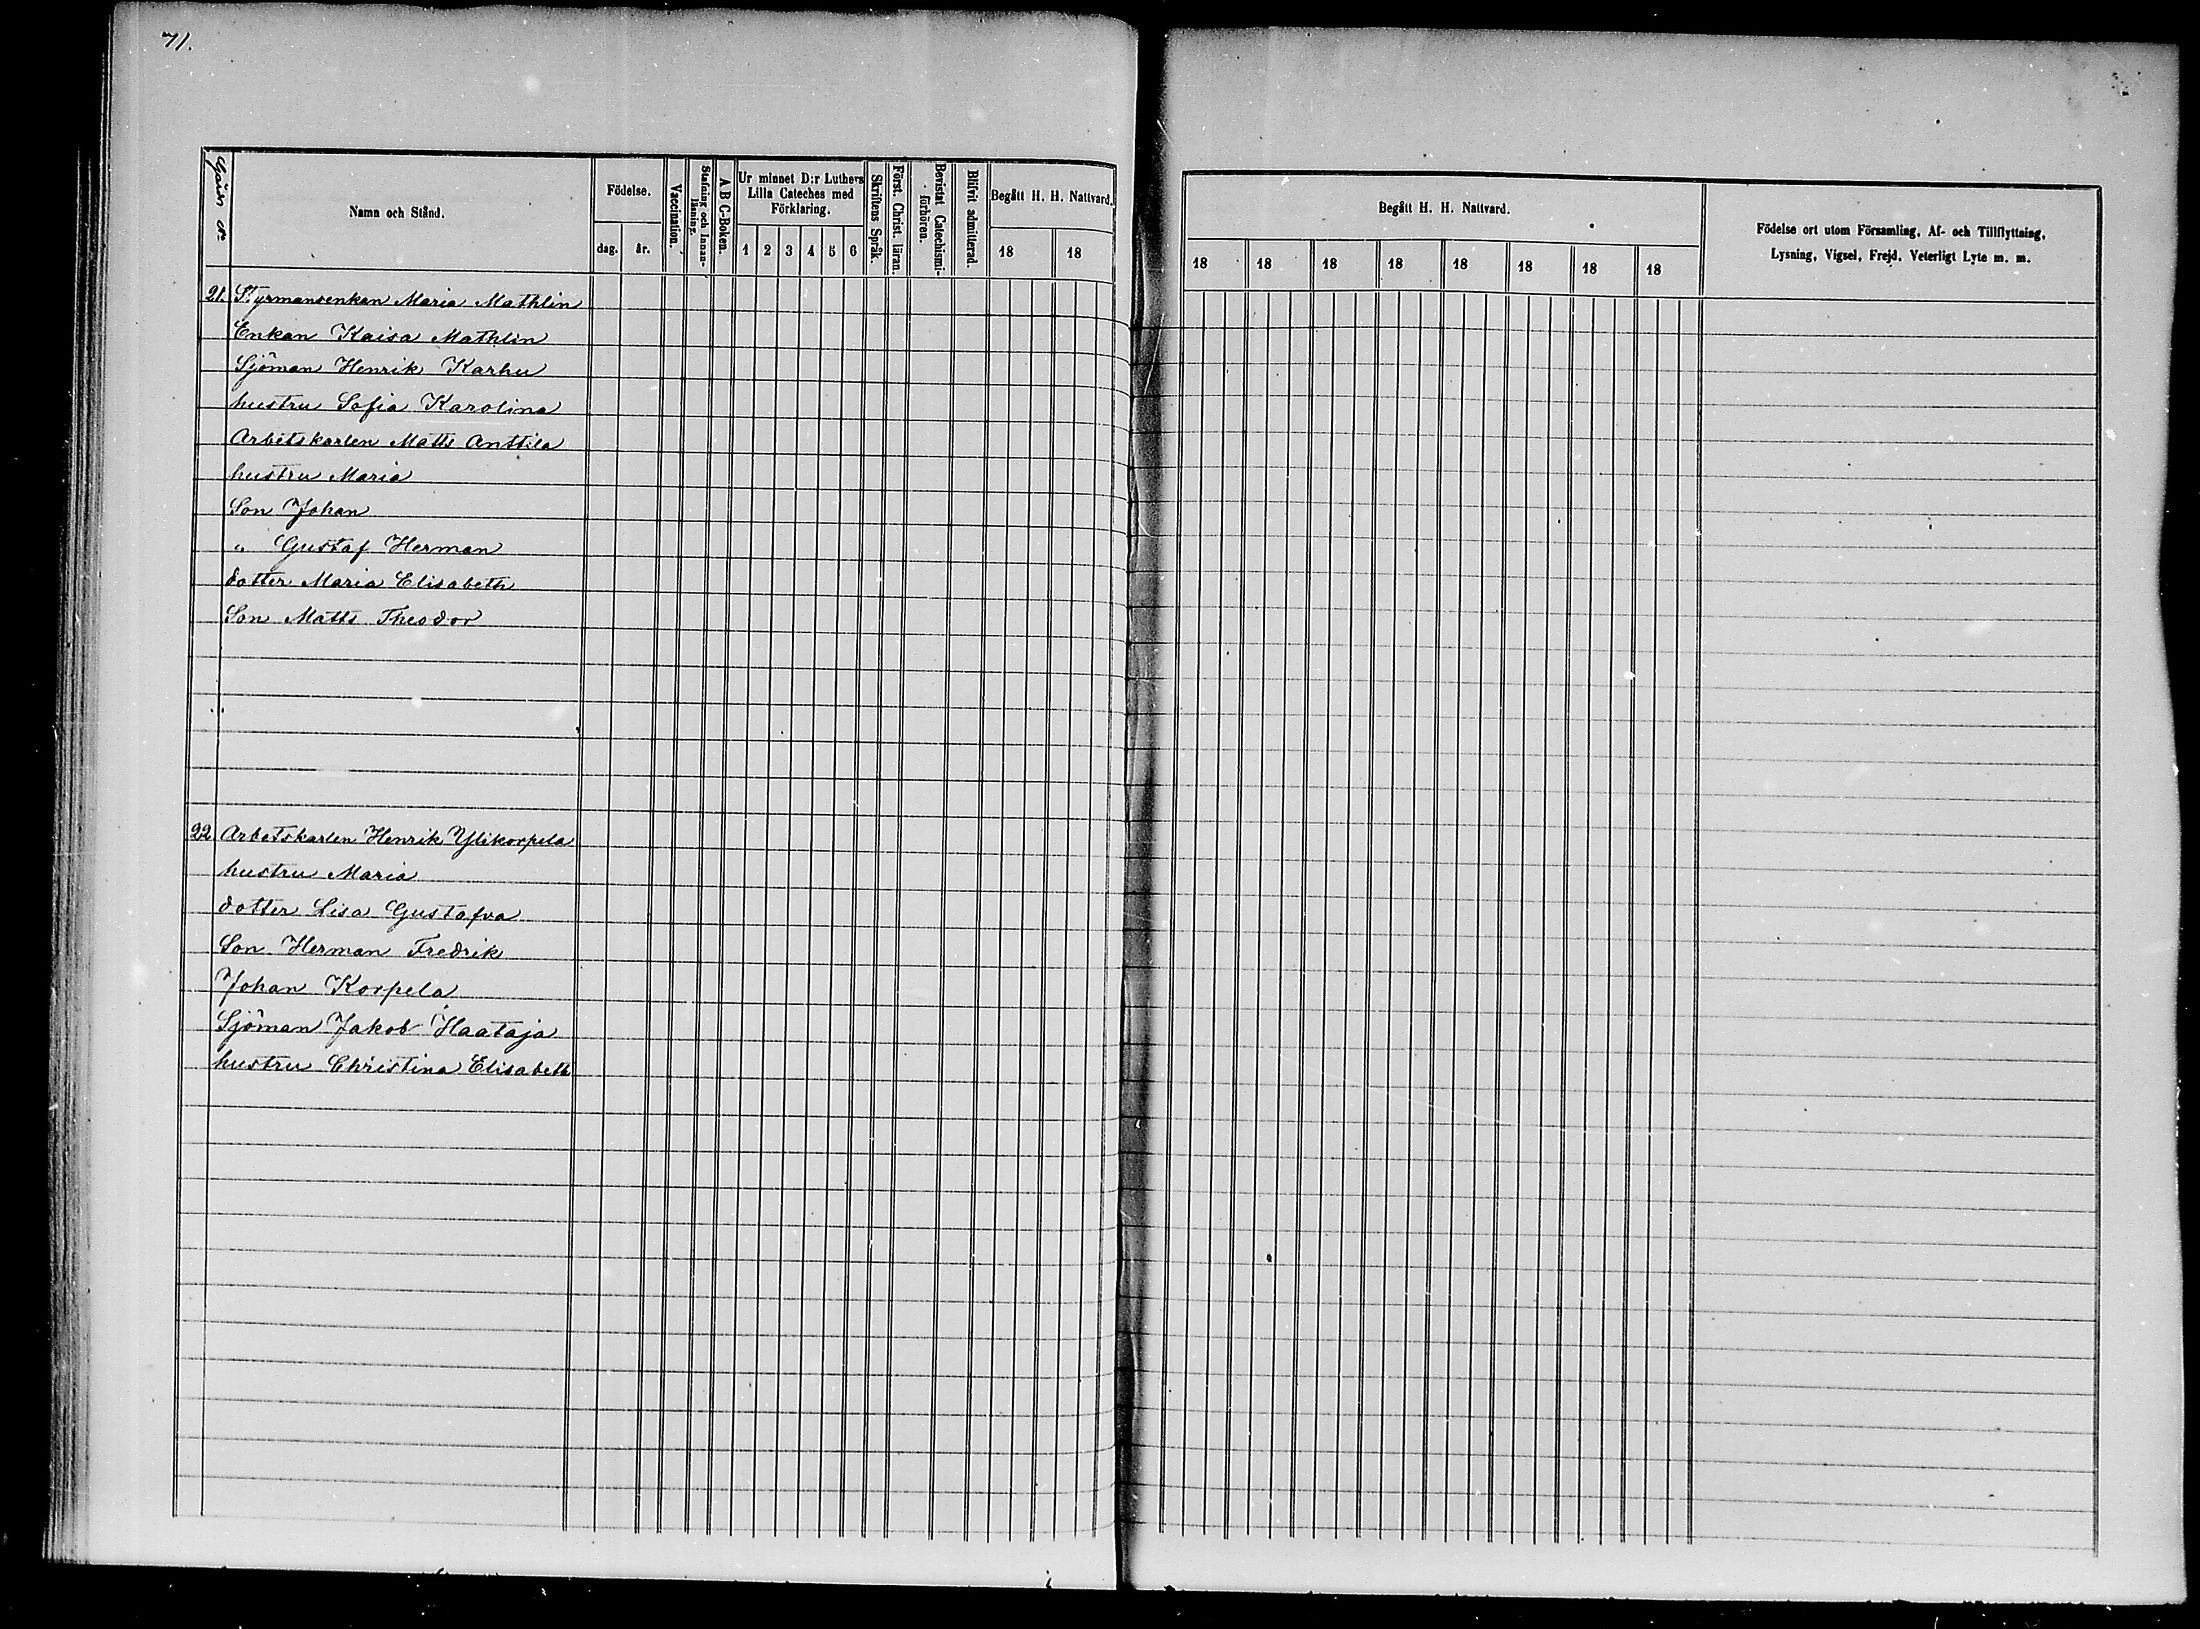 71.
Gårds No
Namn och Stånd.
Födelse.
dag.
år.
Vaccination.
Stafning och Innan-
läsning.
A B C-Boken.
Ur minnet D:r Luthers
Lilla Cateches med
Förklaring.
1 2 3 4 5 6
Skriftens Språk.
Först. Christ. läran.
Bevistat Catechismi-
förhören.
Blifvit admitterad.
Begått H. H. Nattvard.
18 18
Begått H. H. Nattvard.
18 18 18 18 18 18 18 18
Födelse ort utom Församling, Af- och Tillflyttning,
Lysning, Vigsel, Frejd, Veterligt Lyte m. m.
21. Styrmansenkan Maria Mathlin
Enkan Kaisa Mathlin
Sjöman Henrik Karhu
hustru Sofia Karolina
Arbetskarlen Matts Anttila
hustru Maria
Son Johan
" Gustaf Herman
dotter Maria Elisabeth
Son Matts Theodor
22 Arbetskarlen Henrik Ylikorpela
hustru Maria
dotter Lisa Gustafva
Son Herman Fredrik
Johan Korpela
Sjöman Jakob Haataja
hustru Christina Elisabeth